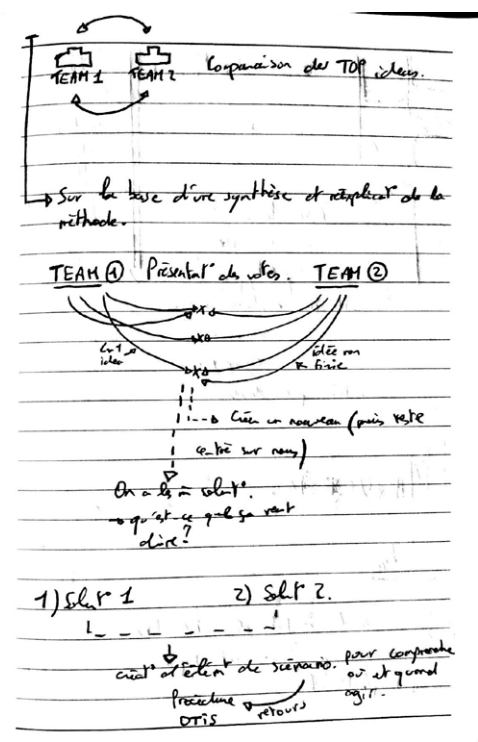 TEAM 1 TEAM 2 Comparaison des TOP ideas.
Sur la base d'une synthèse et réexplicat° de la
méthode.
TEAM ① Présentat° des votes. TEAM ②
idea
idée non
finie
Créer un nouveau (mais reste
centré sur nous)
On a les m̂ solut°.
→ qu'est-ce que ça veut
dire?
1) Solut° 1 2) Solut° 2.
créat° d'élément de scénario. pour comprendre
où et quand
agir.
Procédure retours
OTIS